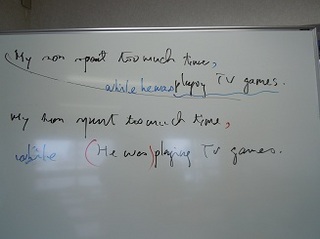 My son spent too much time,
while he was playing TV games.
My son spent too much time,
while (He was) playing TV games.